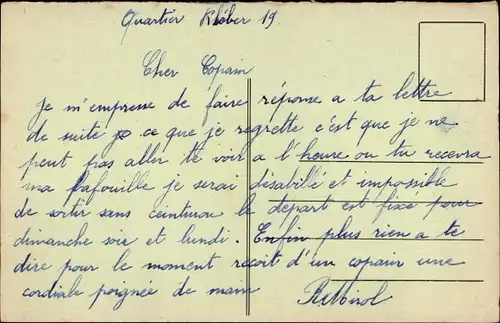 Quartier Kléber 19
Cher Copain
Je m'empresse de faire réponse a ta lettre
de suite ce que je regrette c'est que je ne
peut pas aller te voir a l'heure ou tu recevra
ma fafouille je serai désabillé et impossible
de sortir sans ceinturon le départ est fixé pour
dimanche soir et lundi. Enfin plus rien a te
dire pour le moment recoit d'un copain une
cordiale poignée de main